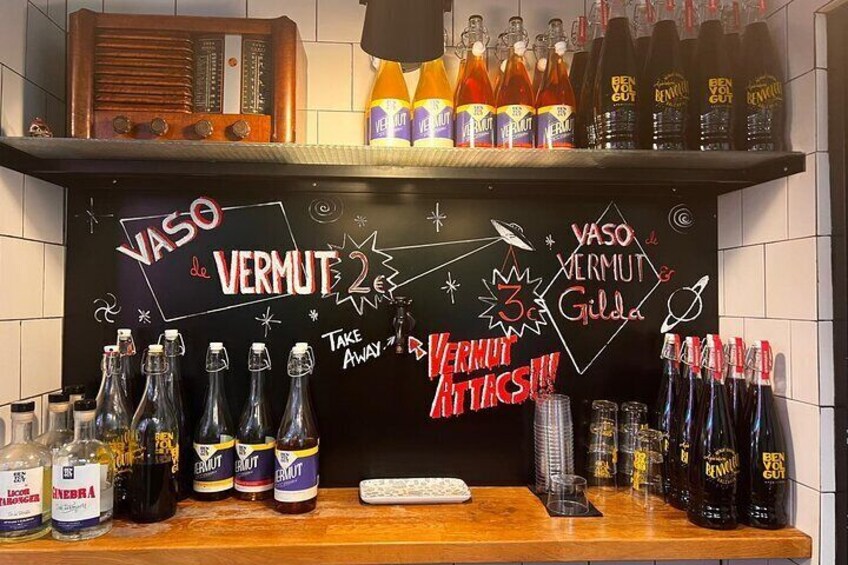 VERMUT
VERMUT
VERMUT
VERMUT
VERMUT
BEN
VOL
GUT
BENVOLGUT
BEN
VOL
GUT
BENVOLGUT
VASO
de
VERMUT 2€
3€
VASO de
VERMUT &
Gilda
TAKE
AWAY
VERMUT
ATTACS!!!
VERMUT
VERMUT
VERMUT
LICOR
GINEBRA
BENVOLGUT
BEN
VOL
GUT